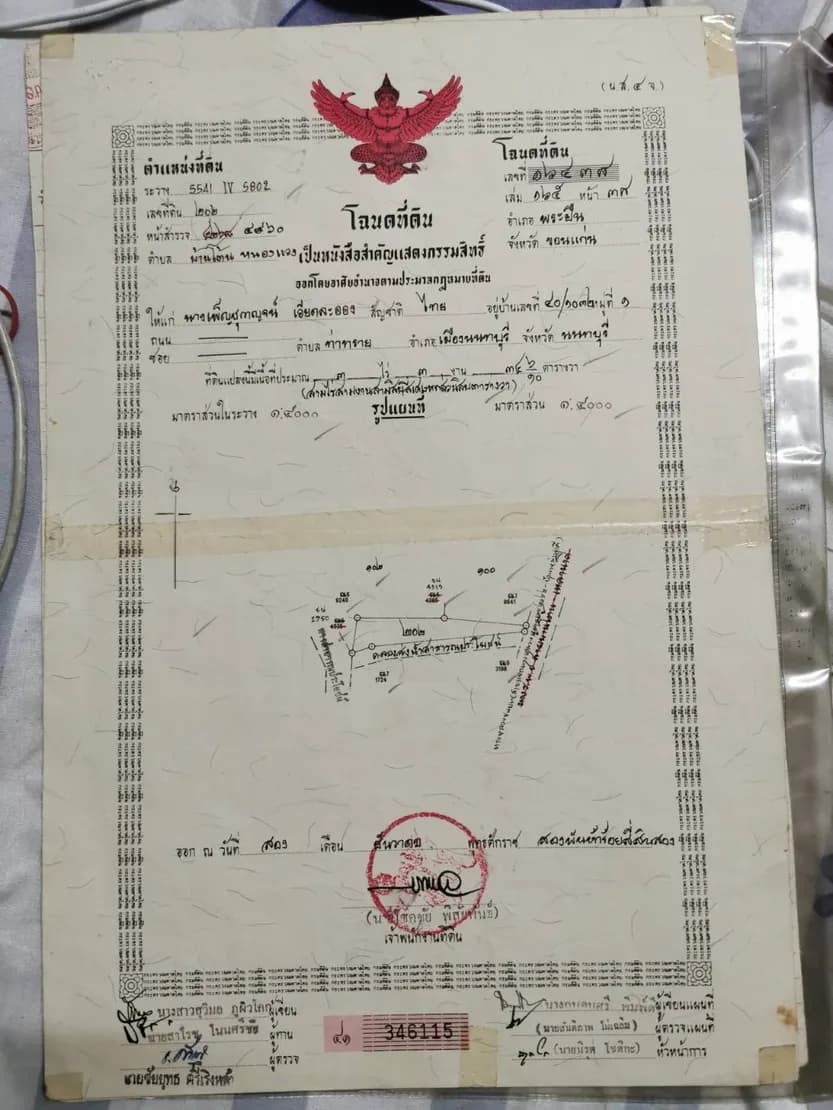 (น.ส. ๔ จ.)
ตำแหน่งที่ดิน
ระวาง 5541 IV 5802
เลขที่ดิน ๒๐๒
หน้าสำรวจ ๔๔๖๐
ตำบล บ้านโต้น หนองแวง
โฉนดที่ดิน
เลขที่ ๑๖๔๓๗
เล่ม ๑๖๕ หน้า ๓๗
อำเภอ พระยืน
จังหวัด ขอนแก่น
โฉนดที่ดิน
เป็นหนังสือสำคัญแสดงกรรมสิทธิ์
ออกโดยอาศัยอำนาจตามประมวลกฎหมายที่ดิน
ให้แก่ นางเพ็ญชุกาญจน์ เอี่ยดละออง สัญชาติ ไทย อยู่บ้านเลขที่ ๔๐/๑๐๓๒ หมู่ที่ ๑
ถนน ตำบล ท่าทราย อำเภอ เมืองนนทบุรี จังหวัด นนทบุรี
ซอย
ที่ดินแปลงนี้มีเนื้อที่ประมาณ ๓ ไร่ ๓ งาน ๓๔ ๖/๑๐ ตารางวา
(สามไร่สามงานสามสิบสี่เศษหกส่วนสิบตารางวา)
มาตราส่วนในระวาง ๑:๔๐๐๐ รูปแผนที่ มาตราส่วน ๑:๔๐๐๐
น
๑๐๒ ๑๐๐
๒๐๒
คลองส่งน้ำสาธารณประโยชน์
ทางสาธารณประโยชน์
ออก ณ วันที่ สอง เดือน ธันวาคม พุทธศักราช สองพันห้าร้อยสี่สิบสอง
เจ้าพนักงานที่ดิน
นางสาวสุวิมล ภูผิวโคก ผู้เขียน
นายสาโรช โนนศรีชัย ผู้ทาน
ผู้ตรวจ
ผู้เขียนแผนที่
(นายสันติภาพ ไม่เฉลม) ผู้ตรวจแผนที่
(นายนิรุต โชติกะ) หัวหน้าการ
๔๑ 346115